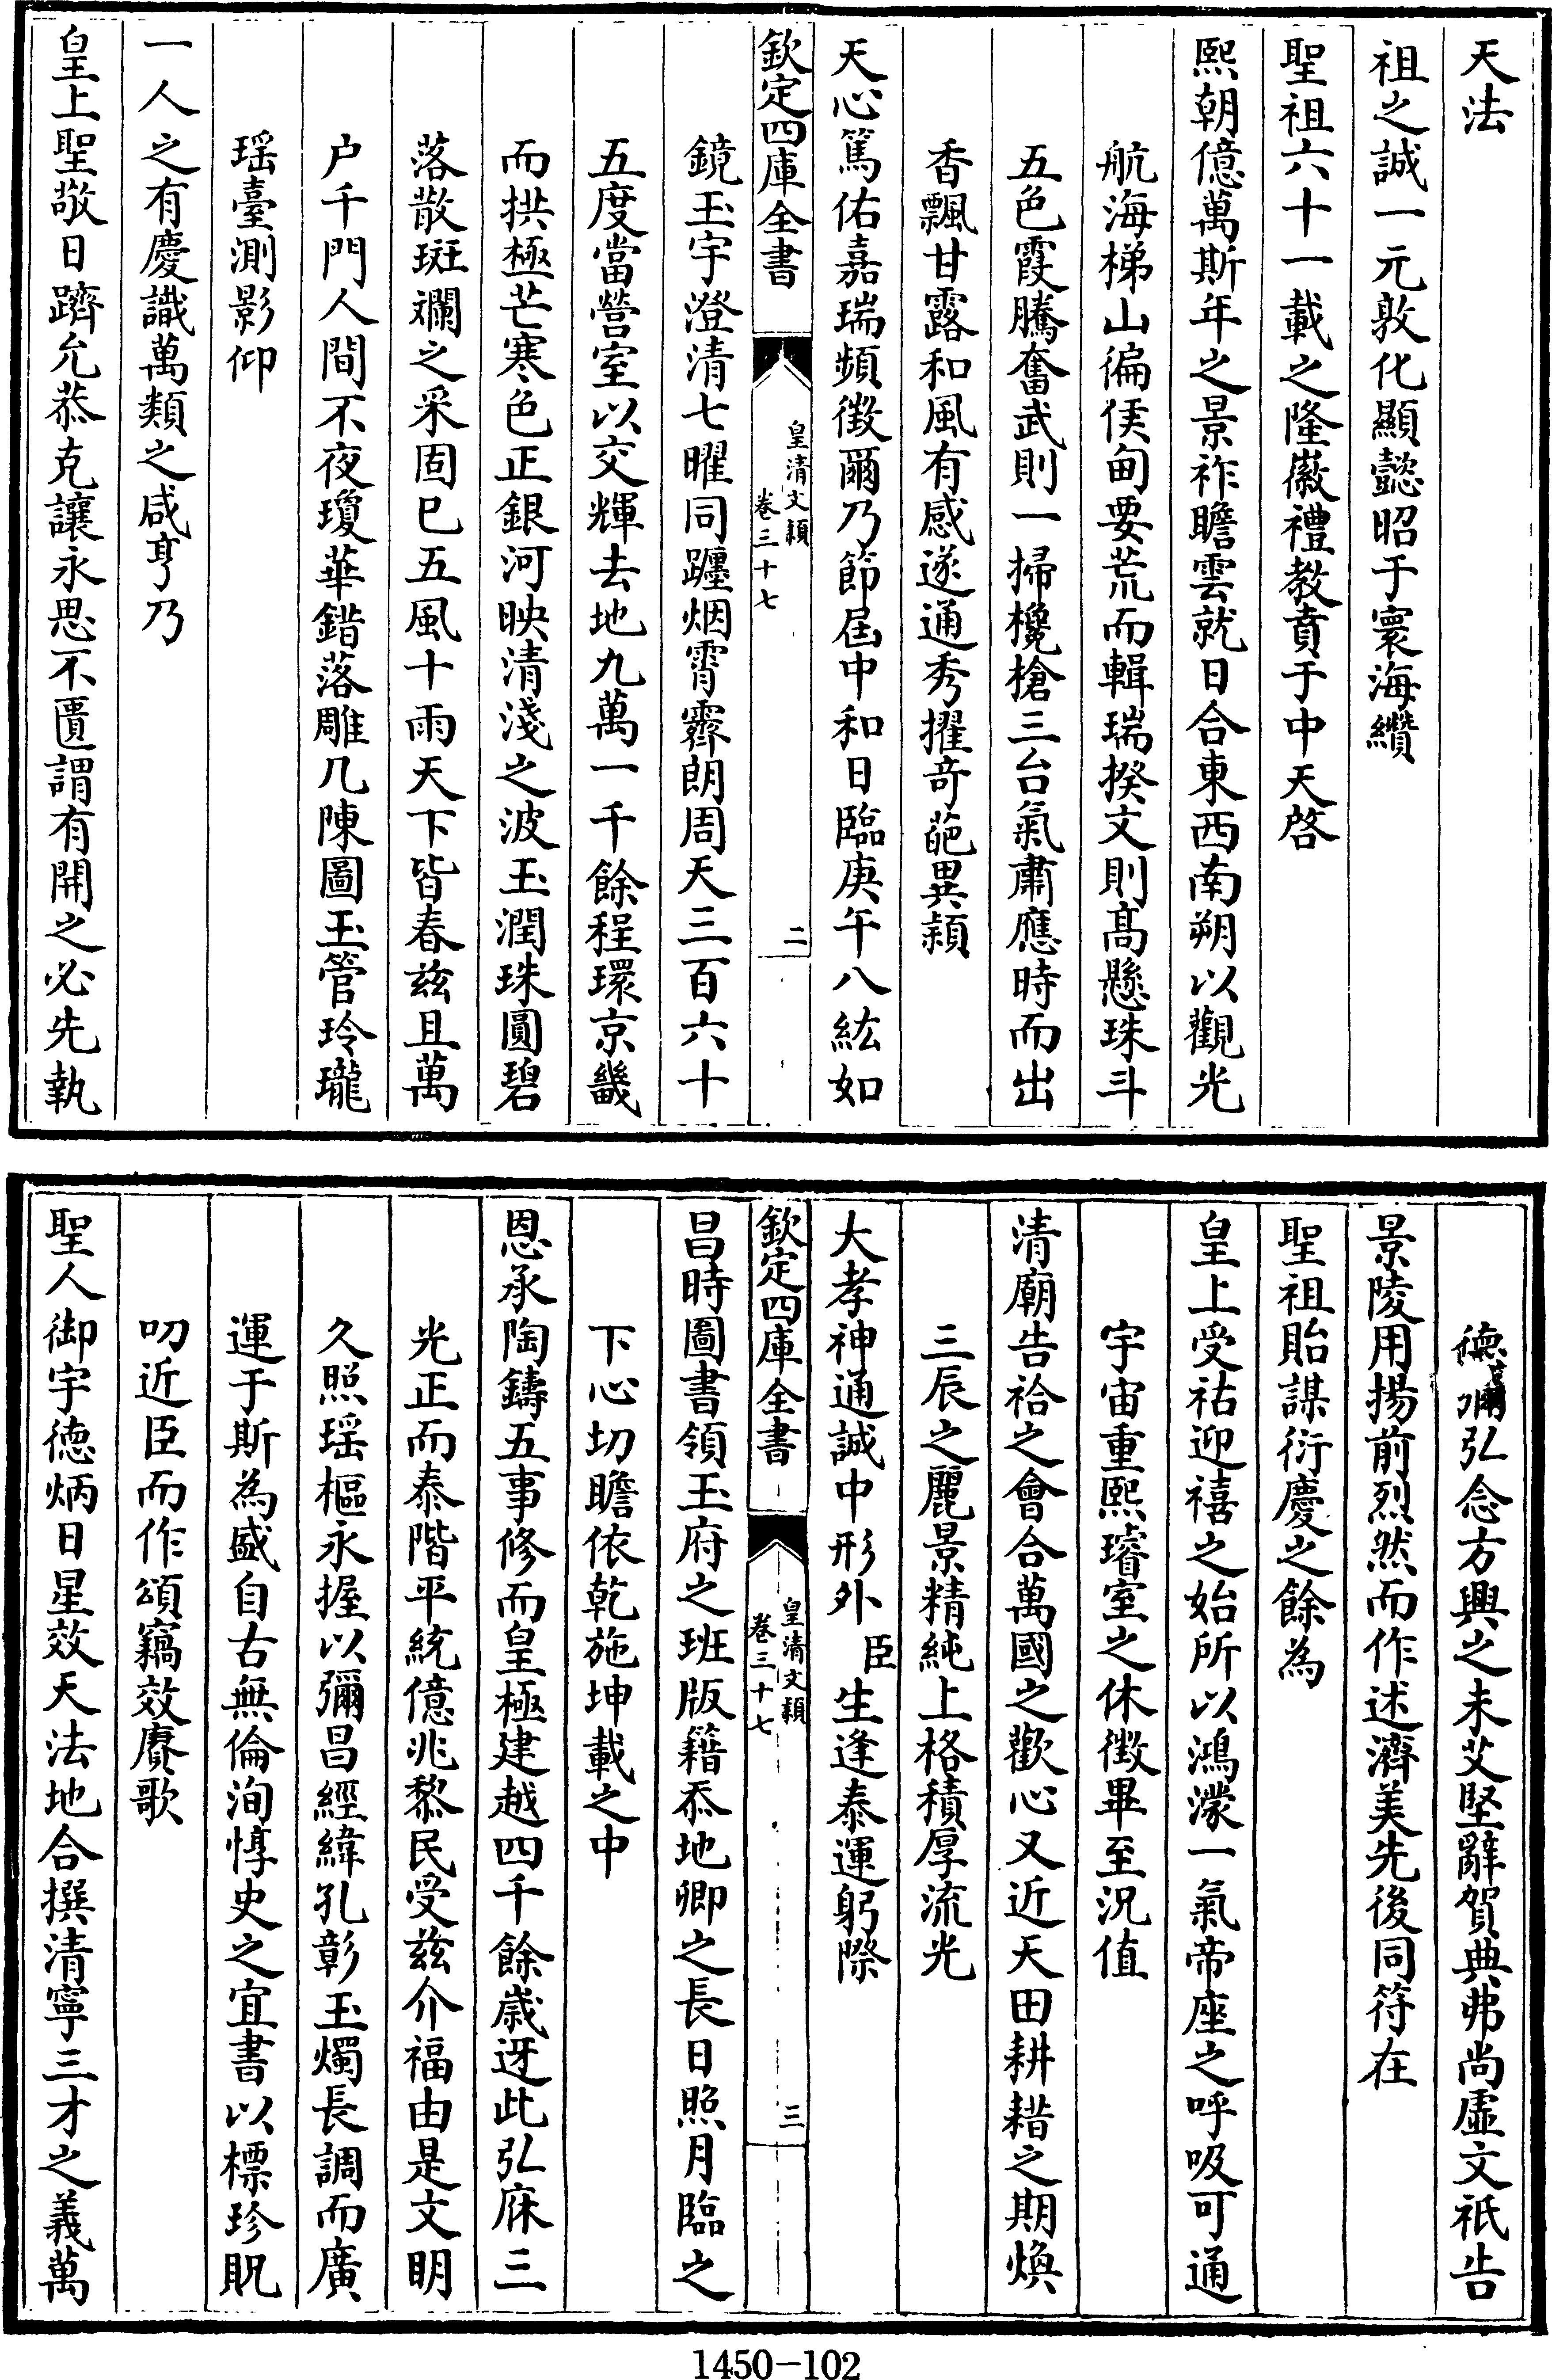 天法
祖之誠一元敦化顯懿昭于寰海纘
聖祖六十一載之隆徽禮教賁于中天啓
熙朝億萬斯年之景祚瞻雲就日合東西南朔以觀光
航海梯山徧侯甸要荒而輯瑞揆文則髙懸珠斗
五色霞騰奮武則一掃欃槍三台氣肅應時而出
香飄甘露和風有感遂通秀擢竒葩異穎
天心篤佑嘉瑞頻徴爾乃節届中和日臨庚午八紘如
欽定四庫全書
皇清文穎
卷三十七
二
鏡玉宇澄清七曜同躔烟霄霽朗周天三百六十
五度當營室以交輝去地九萬一千餘程環京畿
而拱極芒寒色正銀河映清淺之波玉潤珠圓碧
落散斑斕之采固已五風十雨天下皆春兹且萬
户千門人間不夜瓊華錯落雕几陳圖玉管玲瓏
瑶臺測影仰
一人之有慶識萬類之咸亨乃
皇上聖敬日躋允恭克讓永思不匱謂有開之必先執
德彌弘念方興之未艾堅辭賀典弗尚虚文祇告
景陵用揚前烈然而作述濟美先後同符在
聖祖貽謀衍慶之餘為
皇上受祜迎禧之始所以鴻濛一氣帝座之呼吸可通
宇宙重熙璿室之休徴畢至況值
清廟告祫之會合萬國之歡心又近天田耕耤之期煥
三辰之麗景精純上格積厚流光
大孝神通誠中形外臣生逢泰運躬際
欽定四庫全書
皇清文穎
卷三十七
三
昌時圖書領玉府之班版籍忝地卿之長日照月臨之
下心切瞻依乾施坤載之中
恩承陶鑄五事修而皇極建越四千餘歳迓此弘庥三
光正而泰階平統億兆黎民受兹介福由是文明
久照瑶樞永握以彌昌經緯孔彰玉燭長調而廣
運于斯為盛自古無倫洵惇史之宜書以標珍貺
叨近臣而作頌竊效賡歌
聖人御宇德炳日星效天法地合撰清寧三才之義萬
1450-102